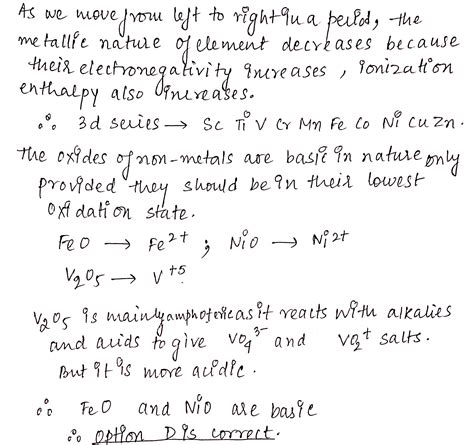 As we move from left to right in a period, the
metallic nature of element decreases because
their electronegativity increases, ionization
enthalpy also increases.
∴ 3d series → Sc Ti V Cr Mn Fe Co Ni Cu Zn.
The oxides of non-metals are basic in nature only
provided they should be in their lowest
oxidation state.
FeO → Fe²⁺ ; NiO → Ni²⁺
V₂O₅ → V⁺⁵
V₂O₅ is mainly amphoteric as it reacts with alkalies
and acids to give VO₄³⁻ and VO₂⁺ salts.
But it is more acidic.
∴ FeO and NiO are basic
∴ option D is correct.